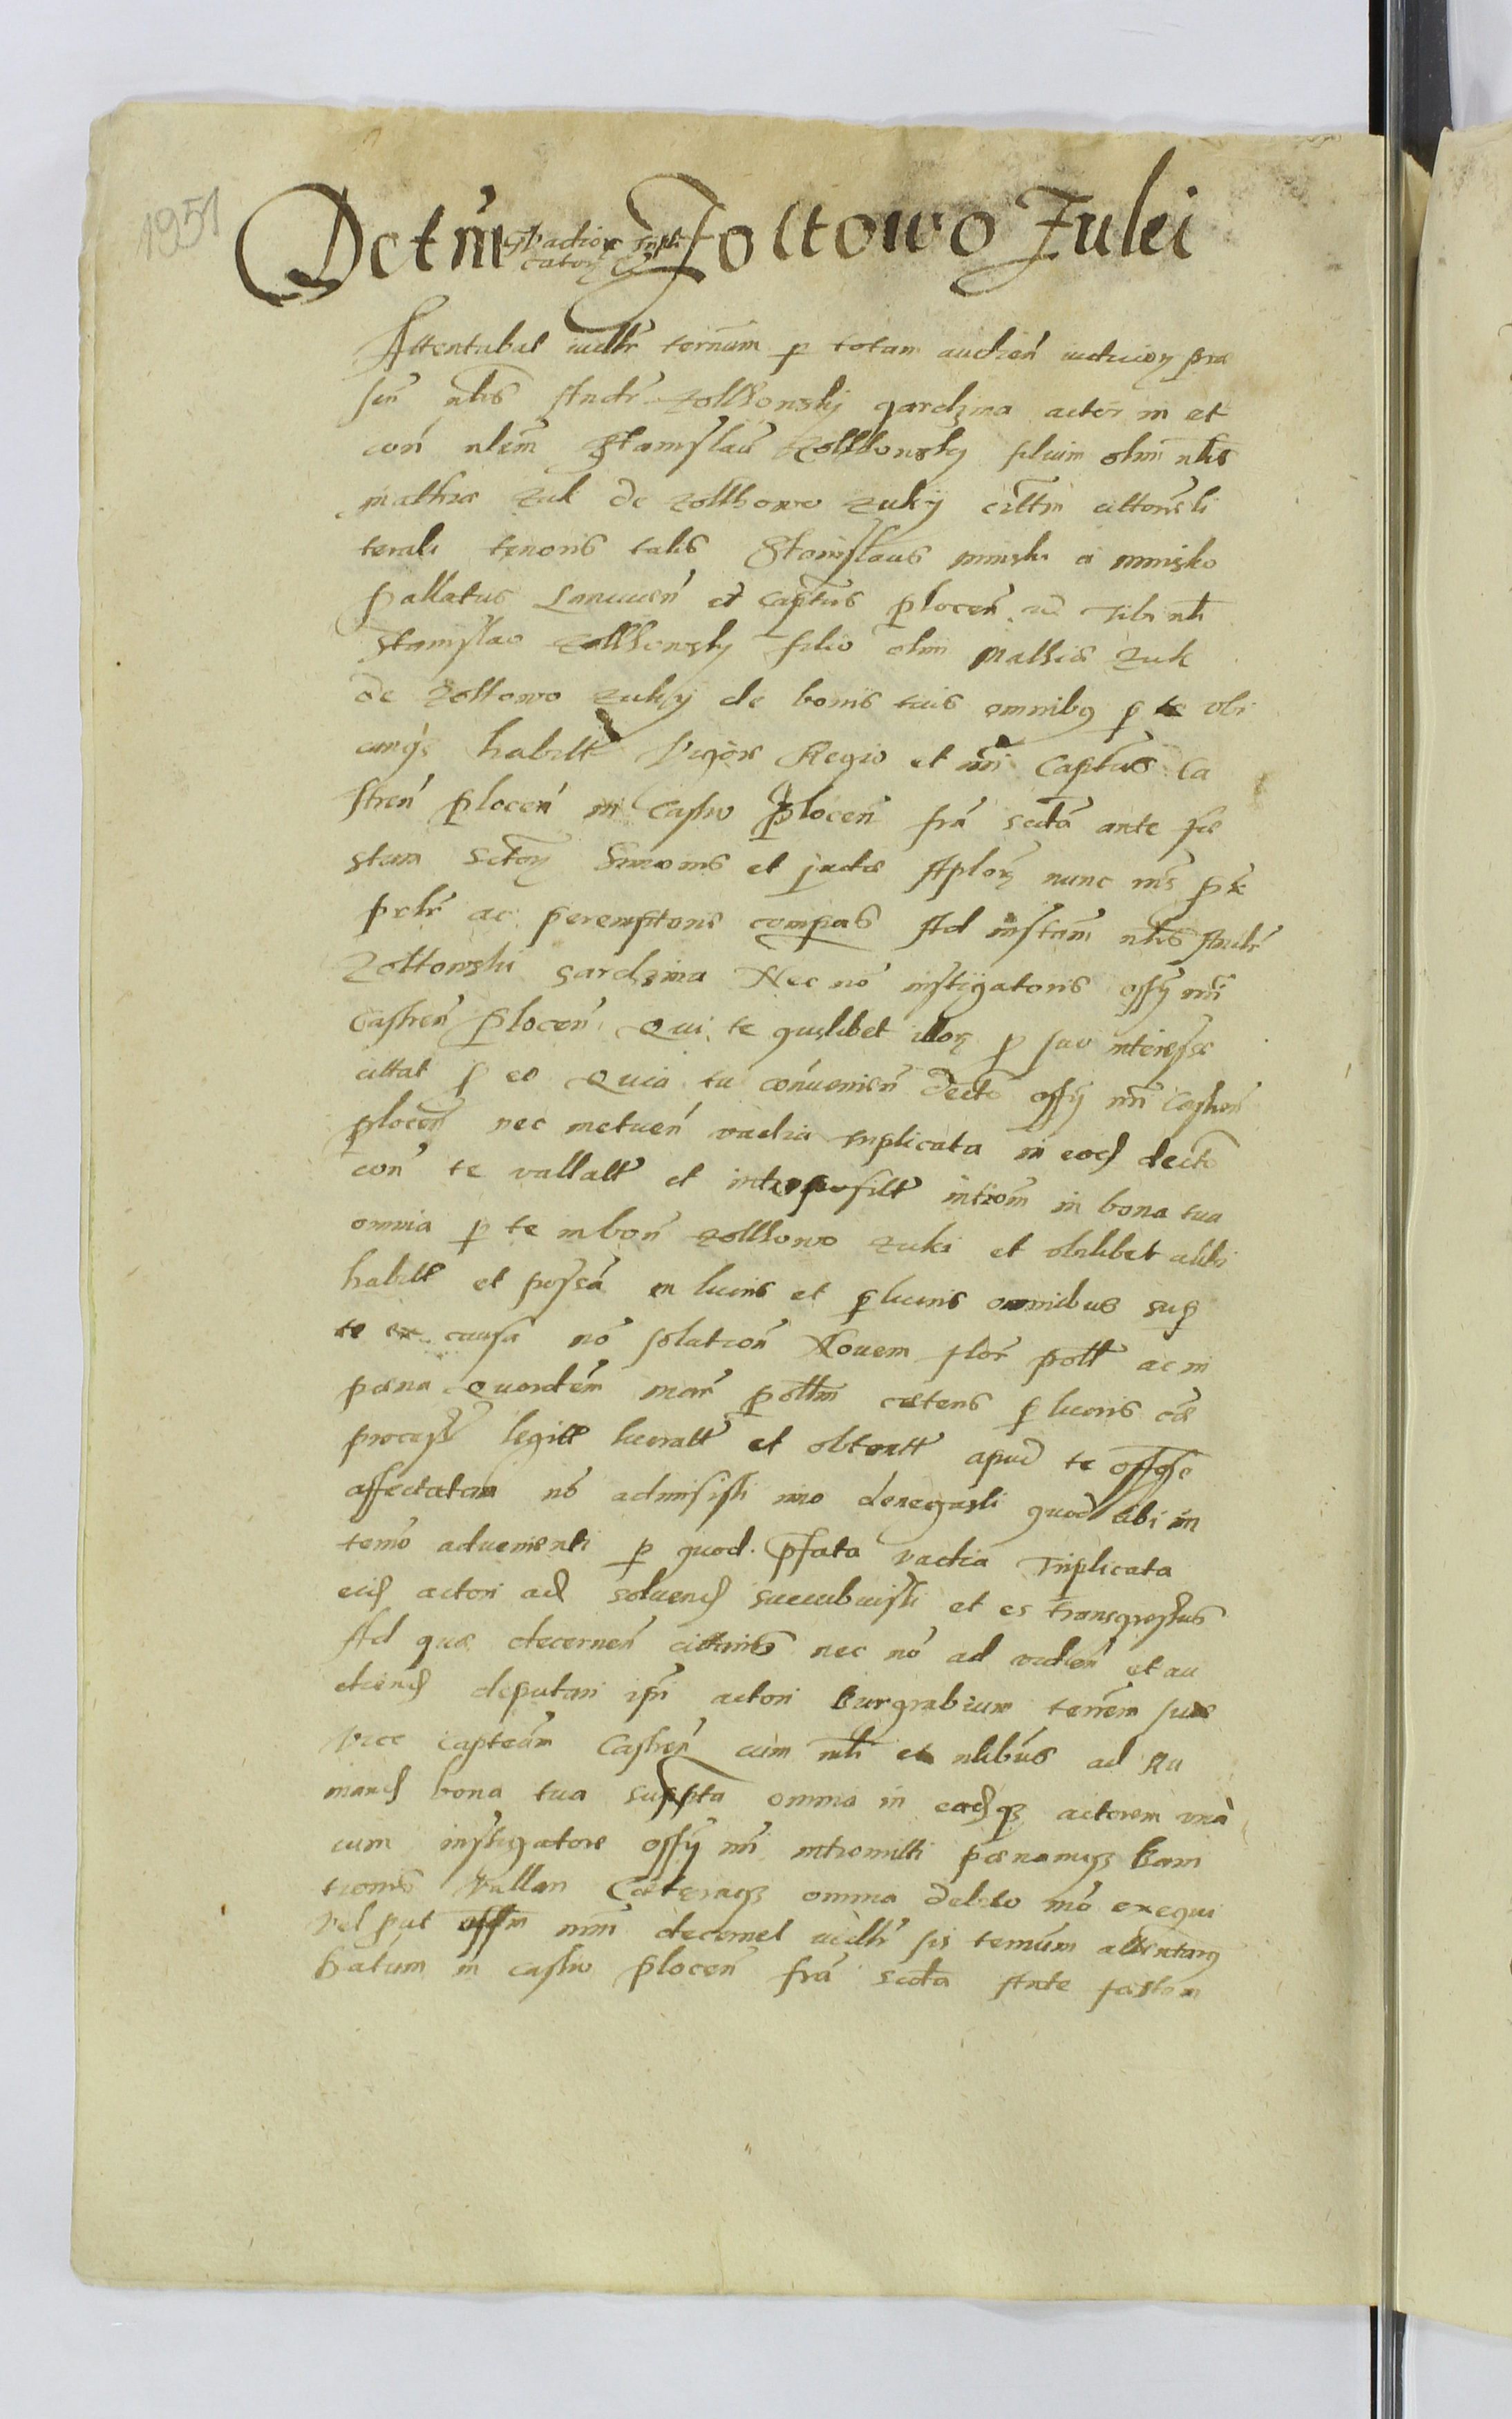 1951
Dctm̃ Zoltowo Zuki
vadior Tripli
cator
Attentabat iudltr̃ termnum p totam audien̄ iudicior præ
sen̄ nb̃lis Andr̃ Zolthowskÿ gardzina actor in et
con̄ nb̃lem Stanislau Zolthowskÿ filium olim nb̃lis
Mathiæ Zuk de Zolthowo Zukÿ cittm̃ citto
terali tenoris talis Stanislaus minski a minsko
pallatus Lancicien̄ et Captus plocen̄ Tibi nb̃li
Stanislao Zolthowskÿ filio olim Mathiæ Zuk
de Zoltowo Zukÿ de bonis tuis omnibq p te vbi
cunqz habitt̃ Vigore Regio et nrĩ Captus Ca
stren̄ plocen̄ in Castro plocen̄ frã scdã ante fæ
stum sctor Simonis et judæ Aplor nunc
ac peremptorie compas Ad instam̄ nb̃lis Andr̃
Zoltowski gardzina Nec nõ instigatoris offÿ nrĩ
Castren̄ plocen̄ Qui te quilibet illor p suo interesse
cittat p eo Quia tu convenien̄ dectõ offÿ nrĩ Castren̄
plocen̄ nec metuen̄ vadia triplicata in eod dectõ
con̄ te vallatt̃ et interpositt̃ intrõm in bona tua
omnia p te in bon̄ Zolthowo Zuki et vbilibet alibi
habitt̃ et possã in lucris et plucris omnibus sup
te ex causa nõ solution̄ Novem flor̃ poltt̃ ac in
pæna Quordem mar̃ polltm cæteris p lucris
process legitt̃ lucratt̃ et obtentt̃ apud te
affectatam nõ admisisti imo denegasti quod tibi in
temõ advenienti p quod pfata vadia Triplicata
eid actori ad solvend succubuisti et es transgressus
Ad quæ decernen̄ nec nõ ad viden̄ et au
diend deputari ipsi actori burgrabium terrem̄ siue
vice capteum̄ Castren̄ cum et nb̃libus ad
mand bona tua suppta omnia in eadqz actorem vnà
cum instigatore offÿ nrĩ intromitti pænamqz ban
tionis Cæteraqz omnia debito mõ exequi
vel put offm nrm̃ decernet iudltr̃ sis termnum attentarq
Datum in castro plocen̄ frã scdã Ante fæstum